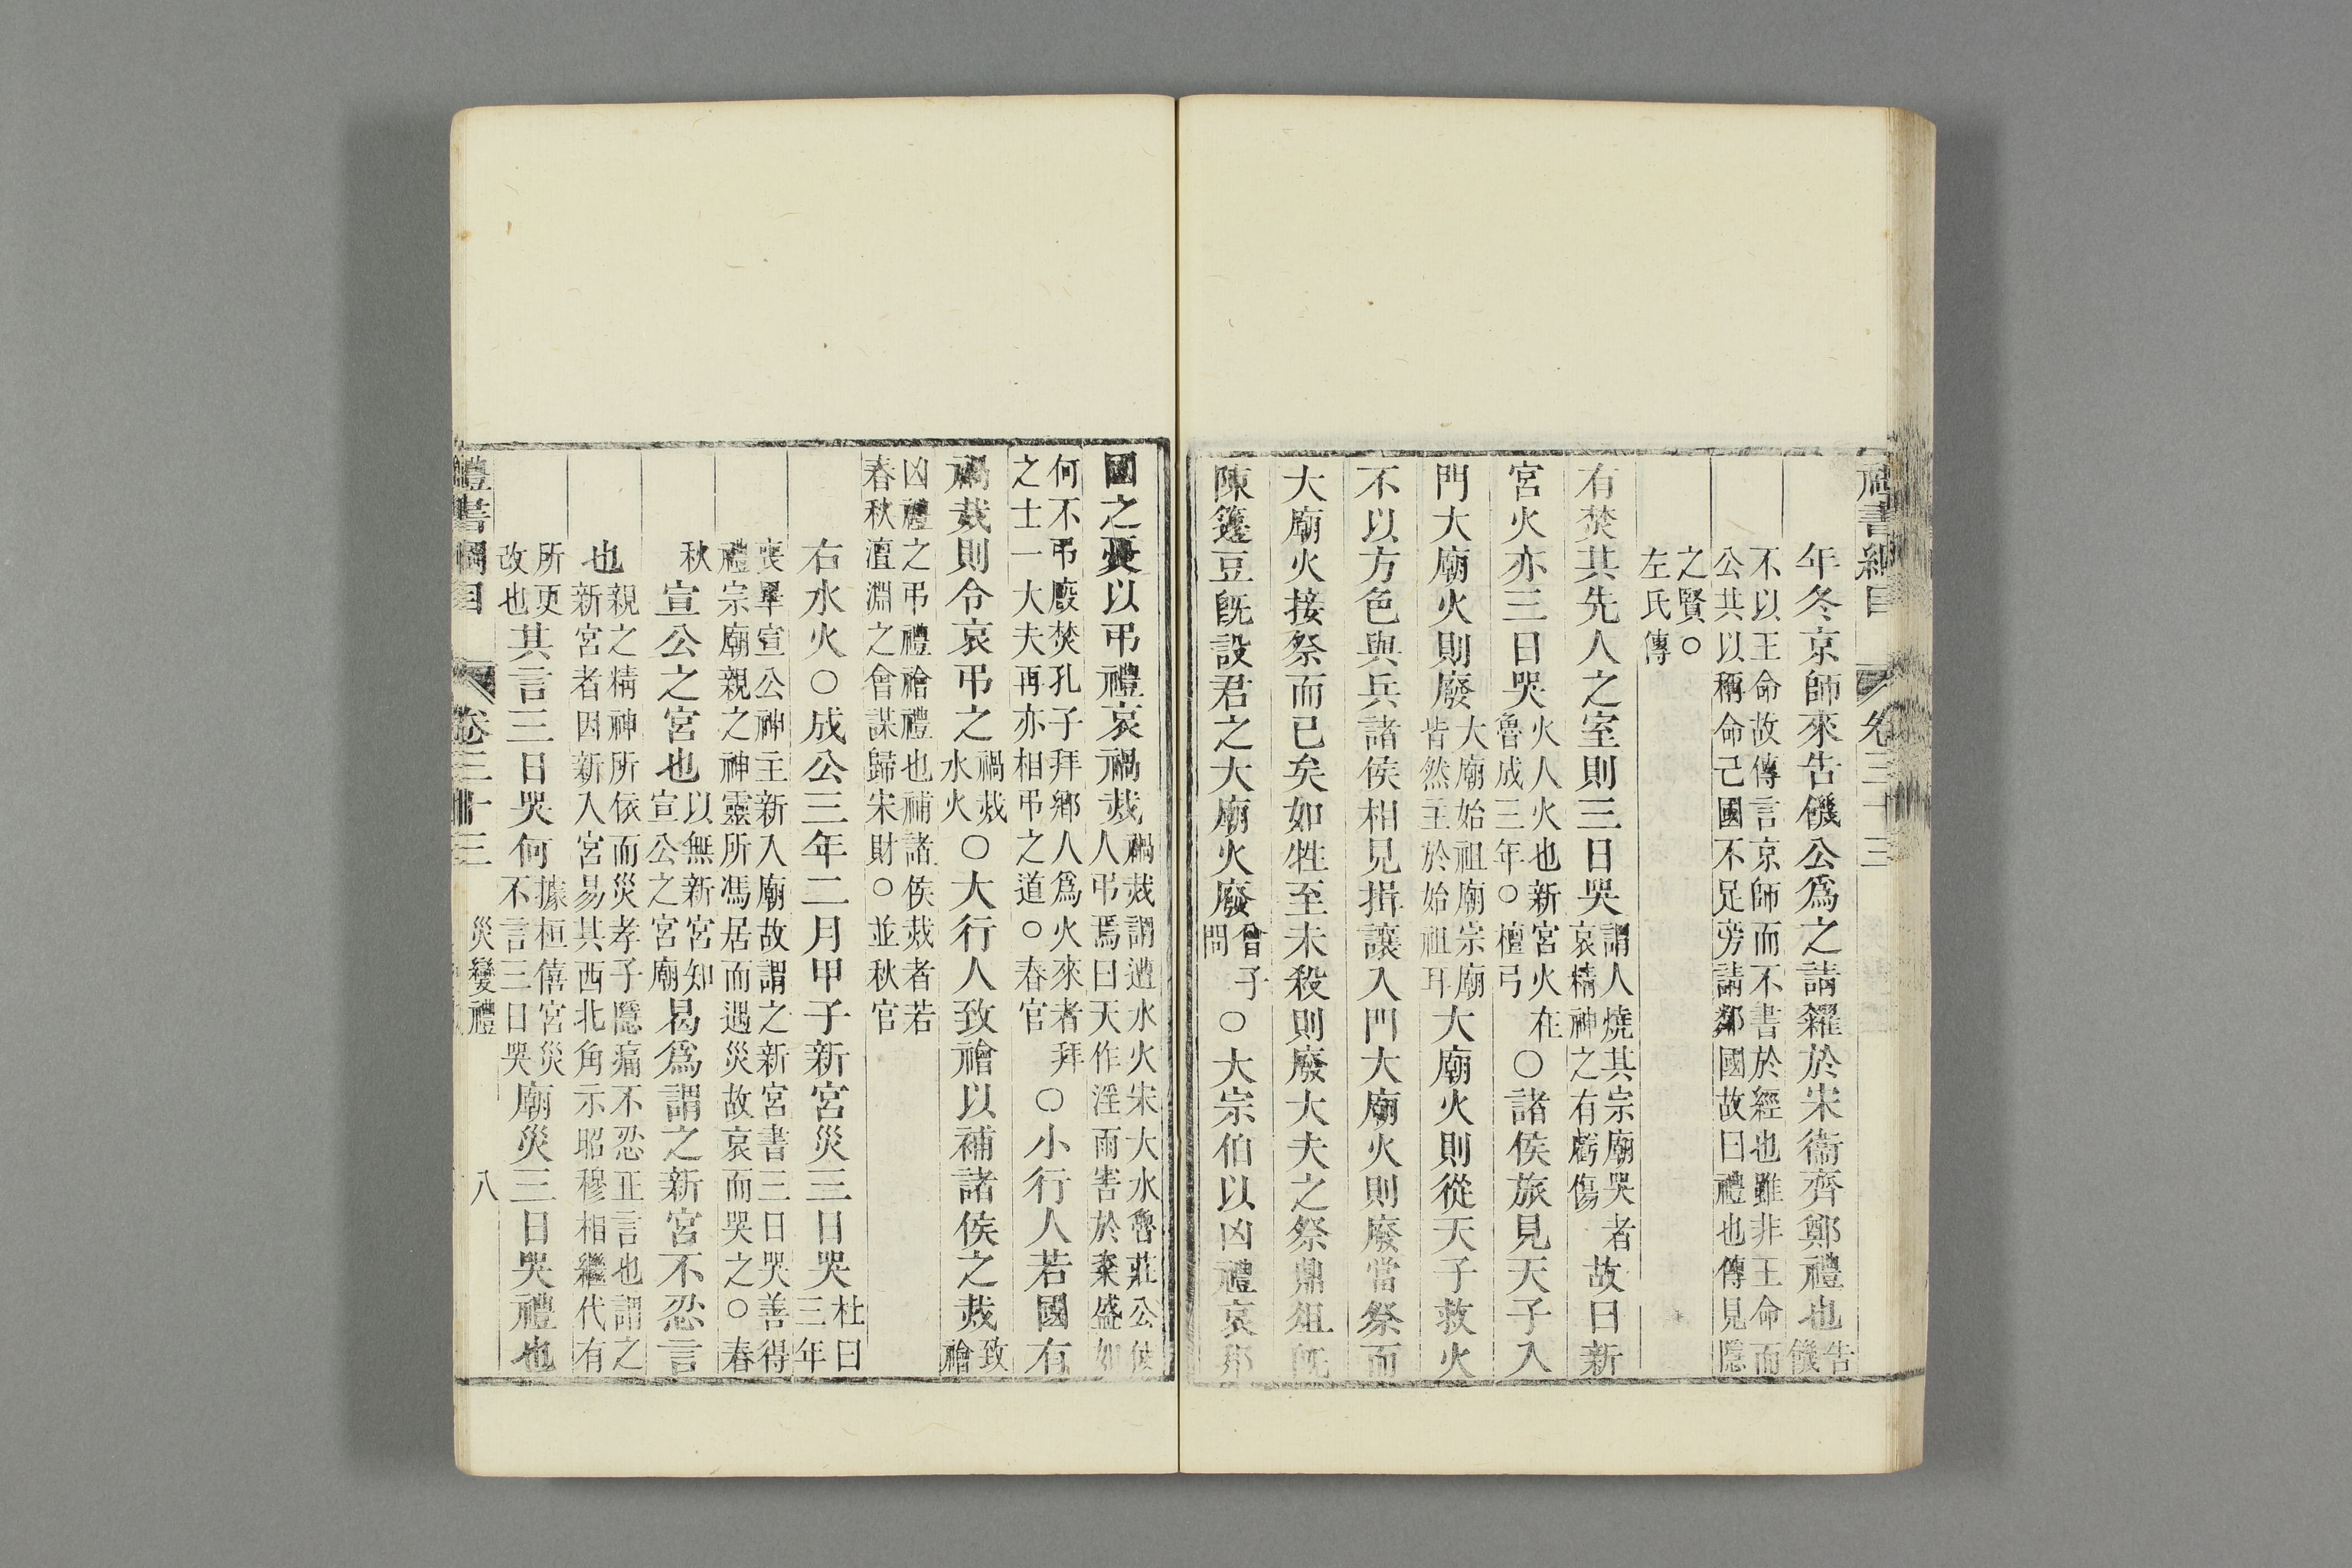 禮書綱目 卷三十三
年冬京師來告饑公爲之請糴於宋衞齊鄭禮也告饑
不以王命故傳言京師而不書於經也雖非王命而
公共以稱命己國不足旁請鄰國故曰禮也傳見隱
之賢○
左氏傳
有焚其先人之室則三日哭謂人燒其宗廟哭者哀精神之有虧傷故曰新
宮火亦三日哭火人火也新宮火在魯成三年○檀弓○諸侯旅見天子入
門大廟火則廢大廟始祖廟宗廟皆然主於始祖耳大廟火則從天子救火
不以方色與兵諸侯相見揖讓入門大廟火則廢當祭而
大廟火接祭而已矣如牲至未殺則廢大夫之祭鼎俎旣
陳籩豆旣設君之大廟火廢曾子問○大宗伯以凶禮哀邦
國之憂以弔禮哀禍烖禍烖謂遭水火宋大水魯莊公使人弔焉曰天作淫雨害於粢盛如
何不弔廄焚孔子拜鄉人爲火來者拜之士一大夫再亦相弔之道○春官○小行人若國有
禍烖則令哀弔之禍烖水火○大行人致禬以補諸侯之烖致禬
凶禮之弔禮禬禮也補諸侯烖者若
春秋澶淵之會謀歸宋財○並秋官
右水火○成公三年二月甲子新宮災三日哭杜曰三年
喪畢宣公神主新入廟故謂之新宮書三日哭善得
禮宗廟親之神靈所馮居而遇災故哀而哭之○春
秋宣公之宮也以無新宮知宣公之宮廟曷爲謂之新宮不忍言
也親之精神所依而災孝子隱痛不忍正言也謂之新宮者因新入宮易其西北角示昭穆相繼代有
所更改也其言三日哭何據桓僖宮災不言三日哭廟災三日哭禮也
禮書綱目 卷三十三 災變禮 八